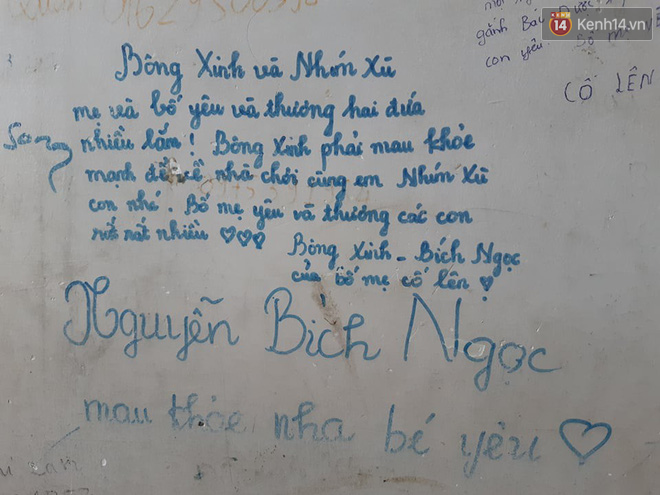 14 Kenh14.vn
gánh
con yêu
CỐ LÊN
Bông Xinh và Nhím Xù
mẹ và bố yêu và thương hai đứa
nhiều lắm! Bông Xinh phải mau khỏe
mạnh để về nhà chơi cùng em Nhím Xù
con nhé. Bố mẹ yêu và thương các con
rất rất nhiều ♡♡♡
Bông Xinh - Bích Ngọc
của bố mẹ cố lên ♡
Nguyễn Bích Ngọc
mau khỏe nha bé yêu ♡